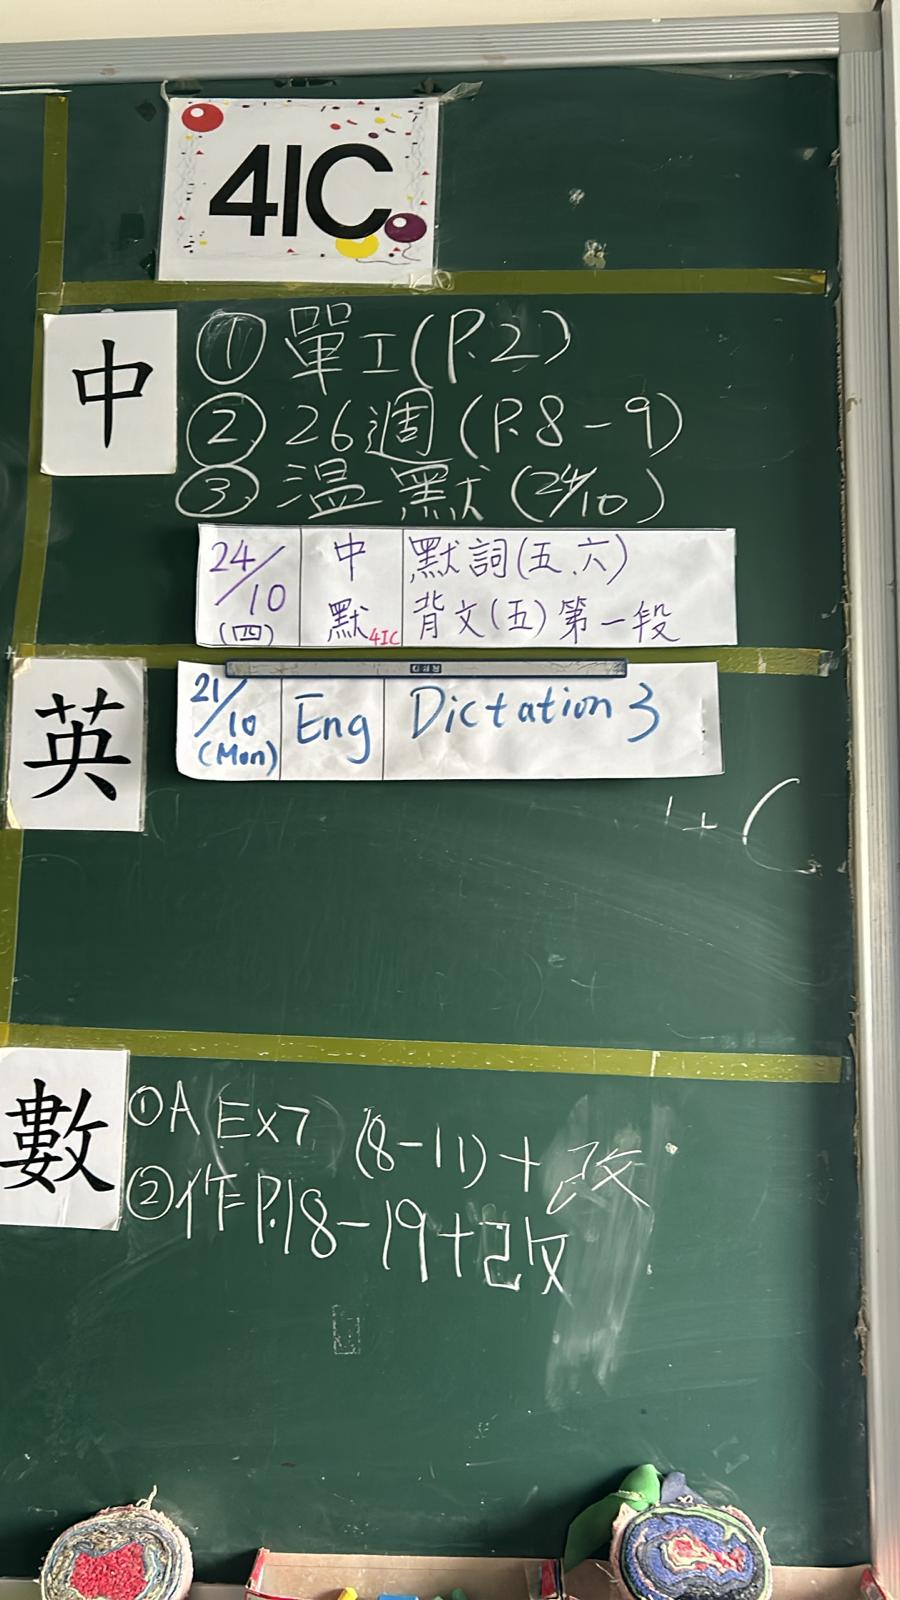 4IC
中
① 單工(P.2)
② 26週(P.8-9)
③ 溫默(24/10)
24/10 (四) 中默 4IC 默詞(五.六)
背文(五)第一段
英
21/10 (Mon) Eng Dictation 3
數
① A Ex7 (8-11)+改
② 作P.18-19+改